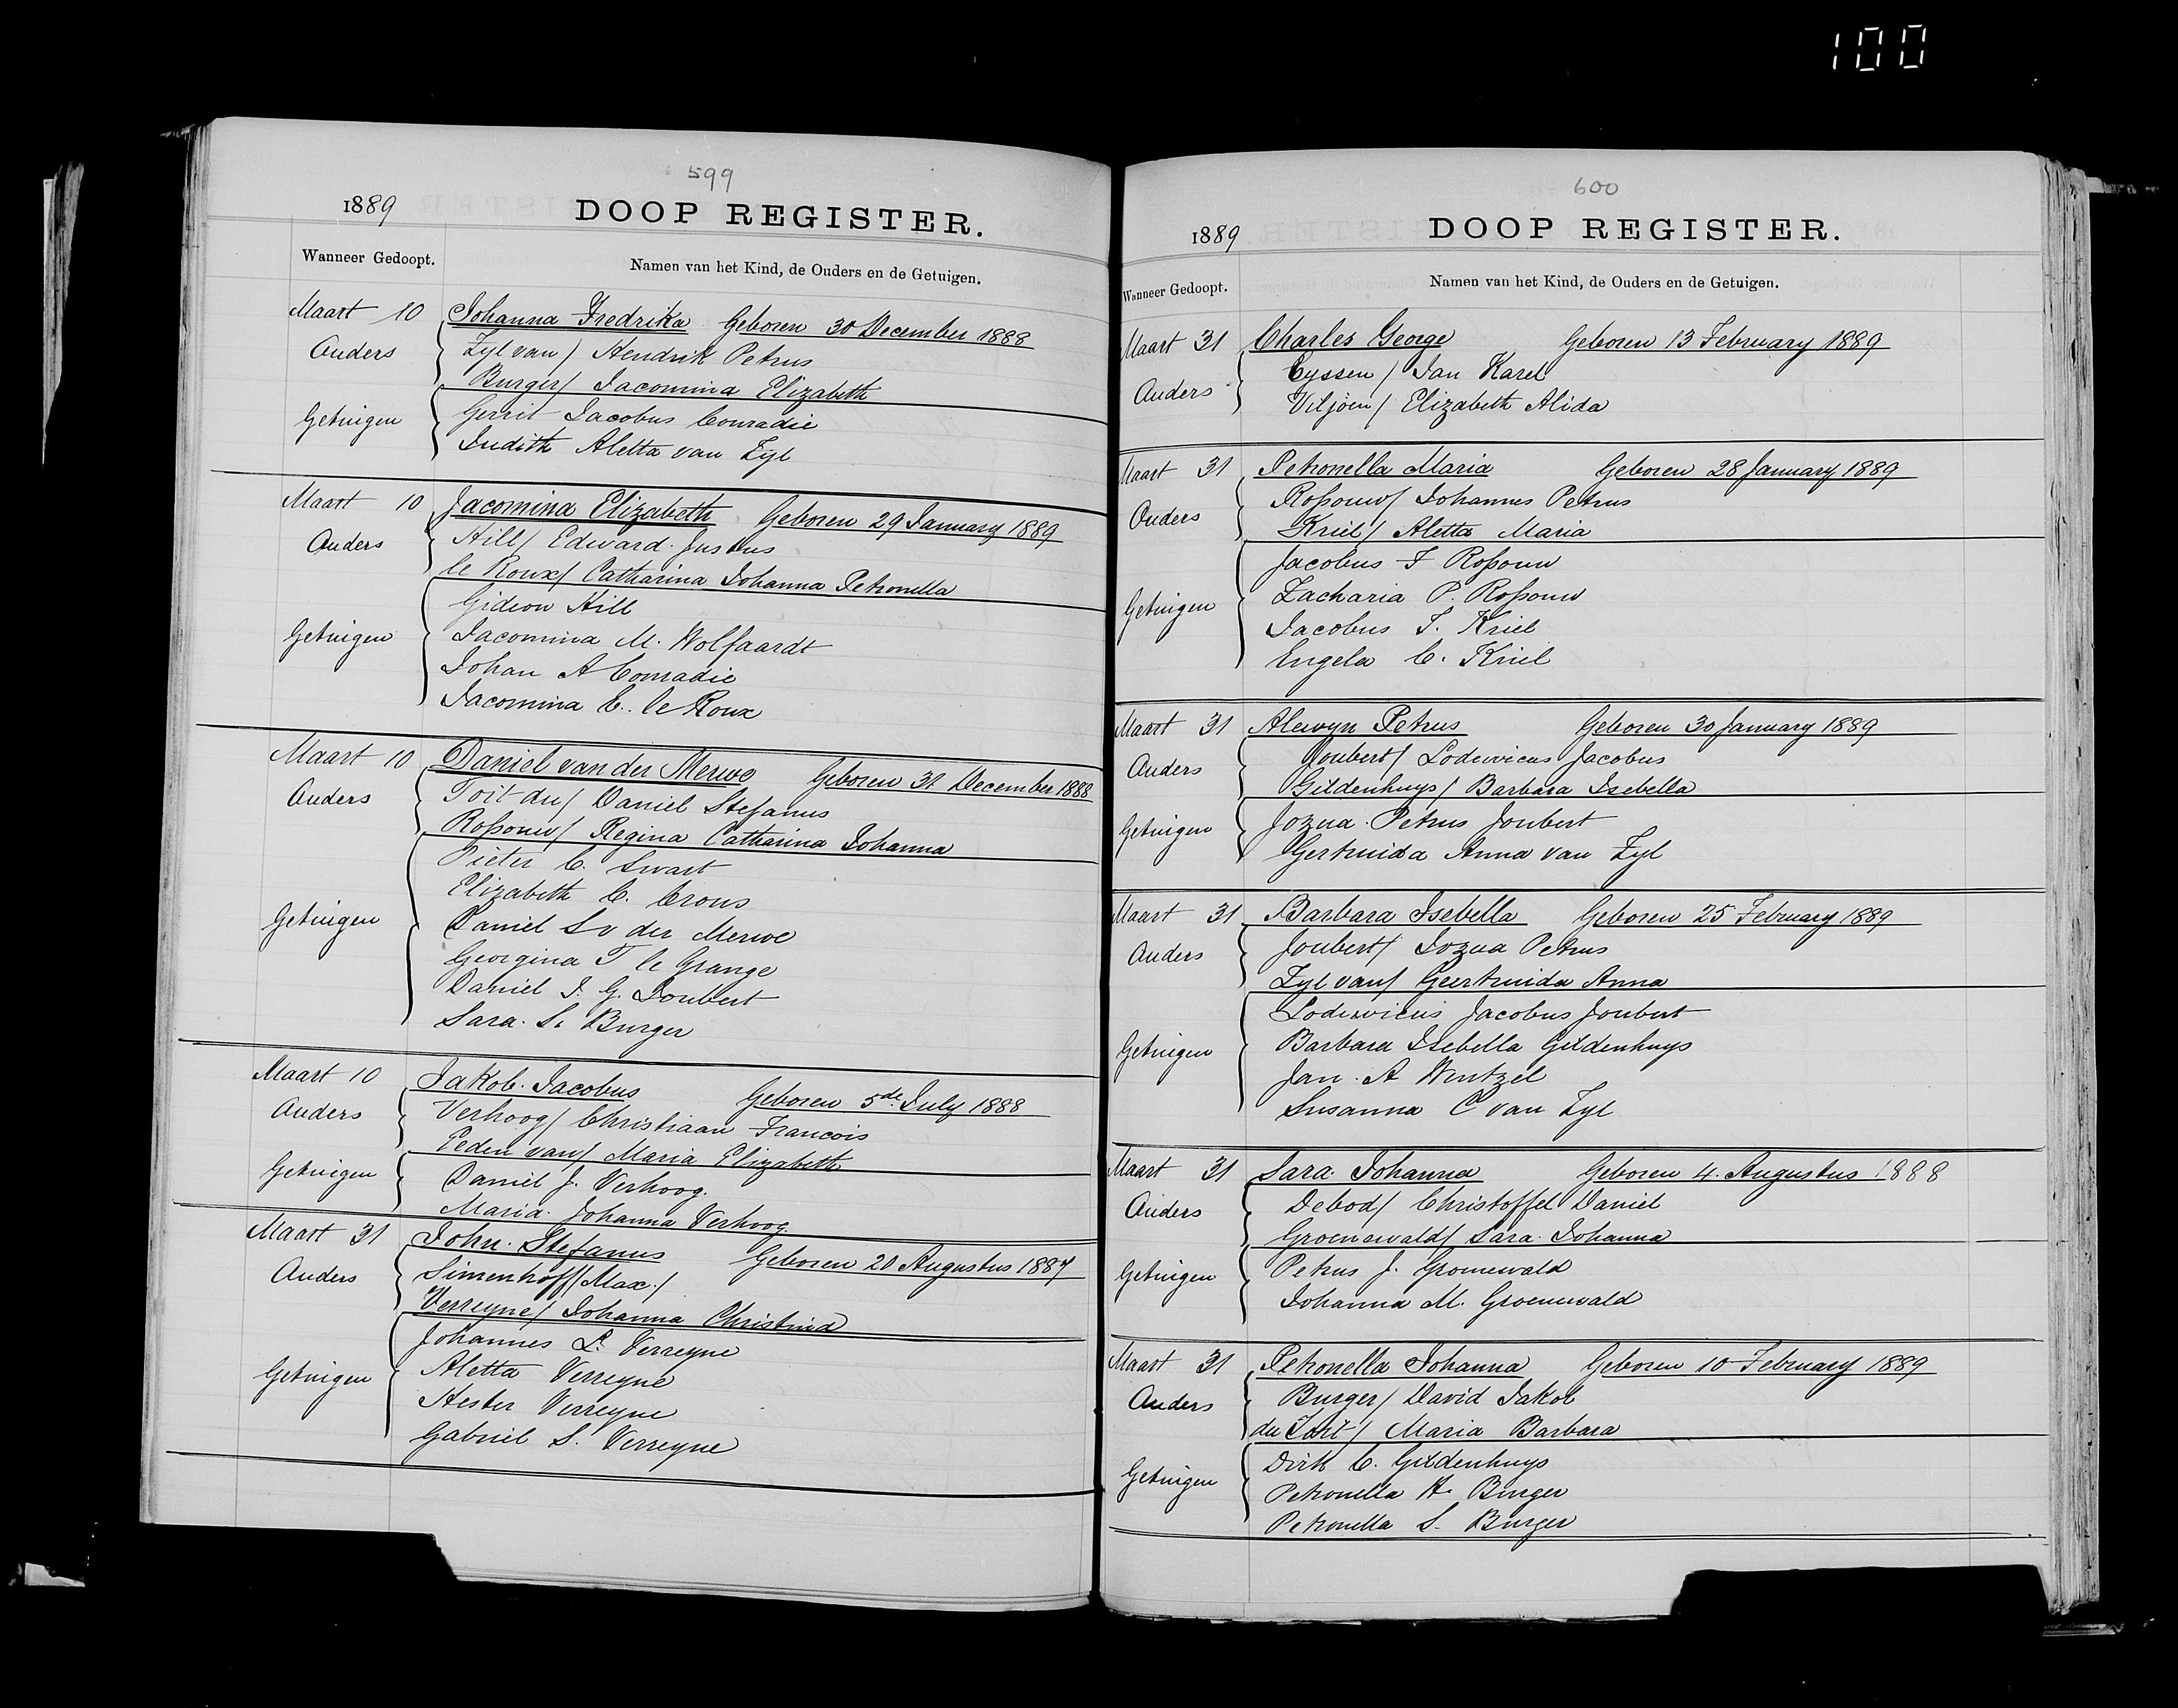 100
599
1889 DOOP REGISTER.
Wanneer Gedoopt. Namen van het Kind, de Ouders en de Getuigen.
Maart 10 Johanna Fredrika Geboren 30 December 1888
Ouders Zyl van / Hendrik Petrus
Burger / Jacomina Elizabeth
Getuigen Gerrit Jacobus Conradie
Judith Aletta van Zyl
Maart 10 Jacomina Elizabeth Geboren 29 January 1889
Ouders Hill / Edward Justus
le Roux / Catharina Johanna Petronella
Gideon Hill
Getuigen Jacomina M. Wolfaardt
Johan A Conradie
Jacomina E. le Roux
Maart 10 Daniel van der Merwe Geboren 31 December 1888
Ouders Toit du / Daniel Stefanus
Roßouw / Regina Catharina Johanna
Pieter C. Swart
Elizabeth C. Crous
Getuigen Daniel S v der Merwe
Georgina T le Grange
Daniel J. G. Joubert
Sara. S. Burger
Maart 10 Jakob. Jacobus Geboren 5de July 1888
Ouders Verhoog / Christiaan Francois
Eeden van / Maria Elizabeth
Getuigen Daniel J. Verhoog.
Maria. Johanna Verhoog.
Maart 31 John. Stefanus Geboren 20 Augustus 1887
Ouders Simenhoff / Max. /
Verreyne / Johanna Christina
Johannes L. Verreyne
Getuigen Aletta Verreyne
Hester Verreyne
Gabriel S. Verreyne
600
1889 DOOP REGISTER.
Wanneer Gedoopt. Namen van het Kind, de Ouders en de Getuigen.
Maart 31 Charles George Geboren 13 February 1889
Ouders Eyssen / Jan Karel
Viljoen / Elizabeth Alida
Maart 31 Petronella Maria Geboren 28 January 1889
Ouders Roßouw / Johannes Petrus
Kriel / Aletta Maria
Jacobus F Roßouw
Getuigen Zacharia P. Roßouw
Jacobus F. Kriel
Engela C. Kriel
Maart 31 Alewyn Petrus Geboren 30 January 1889
Ouders Joubert / Lodewicus Jacobus
Gildenhuys / Barbara Isebella
Getuigen Jozua. Petrus Joubert
Gertruida Anna van Zyl
Maart 31 Barbara Isebella Geboren 25 February 1889
Ouders Joubert / Jozua Petrus
Zyl van / Geertruida Anna
Lodewicus Jacobus Joubert
Getuigen Barbara Isebella Gildenhuys
Jan. A Wentzel
Susanna C van Zyl
Maart 31 Sara Johanna Geboren 4. Augustus 1888
Ouders Debod / Christoffel Daniel
Groenewald / Sara. Johanna
Getuigen Petrus J. Groenewald
Johanna M. Groenewald
Maart 31 Petronella Johanna Geboren 10 February 1889
Ouders Burger / David Jakob
du Toit / Maria Barbara
Getuigen Dirk C. Gildenhuys
Petronella H. Burger
Petronella S. Burger